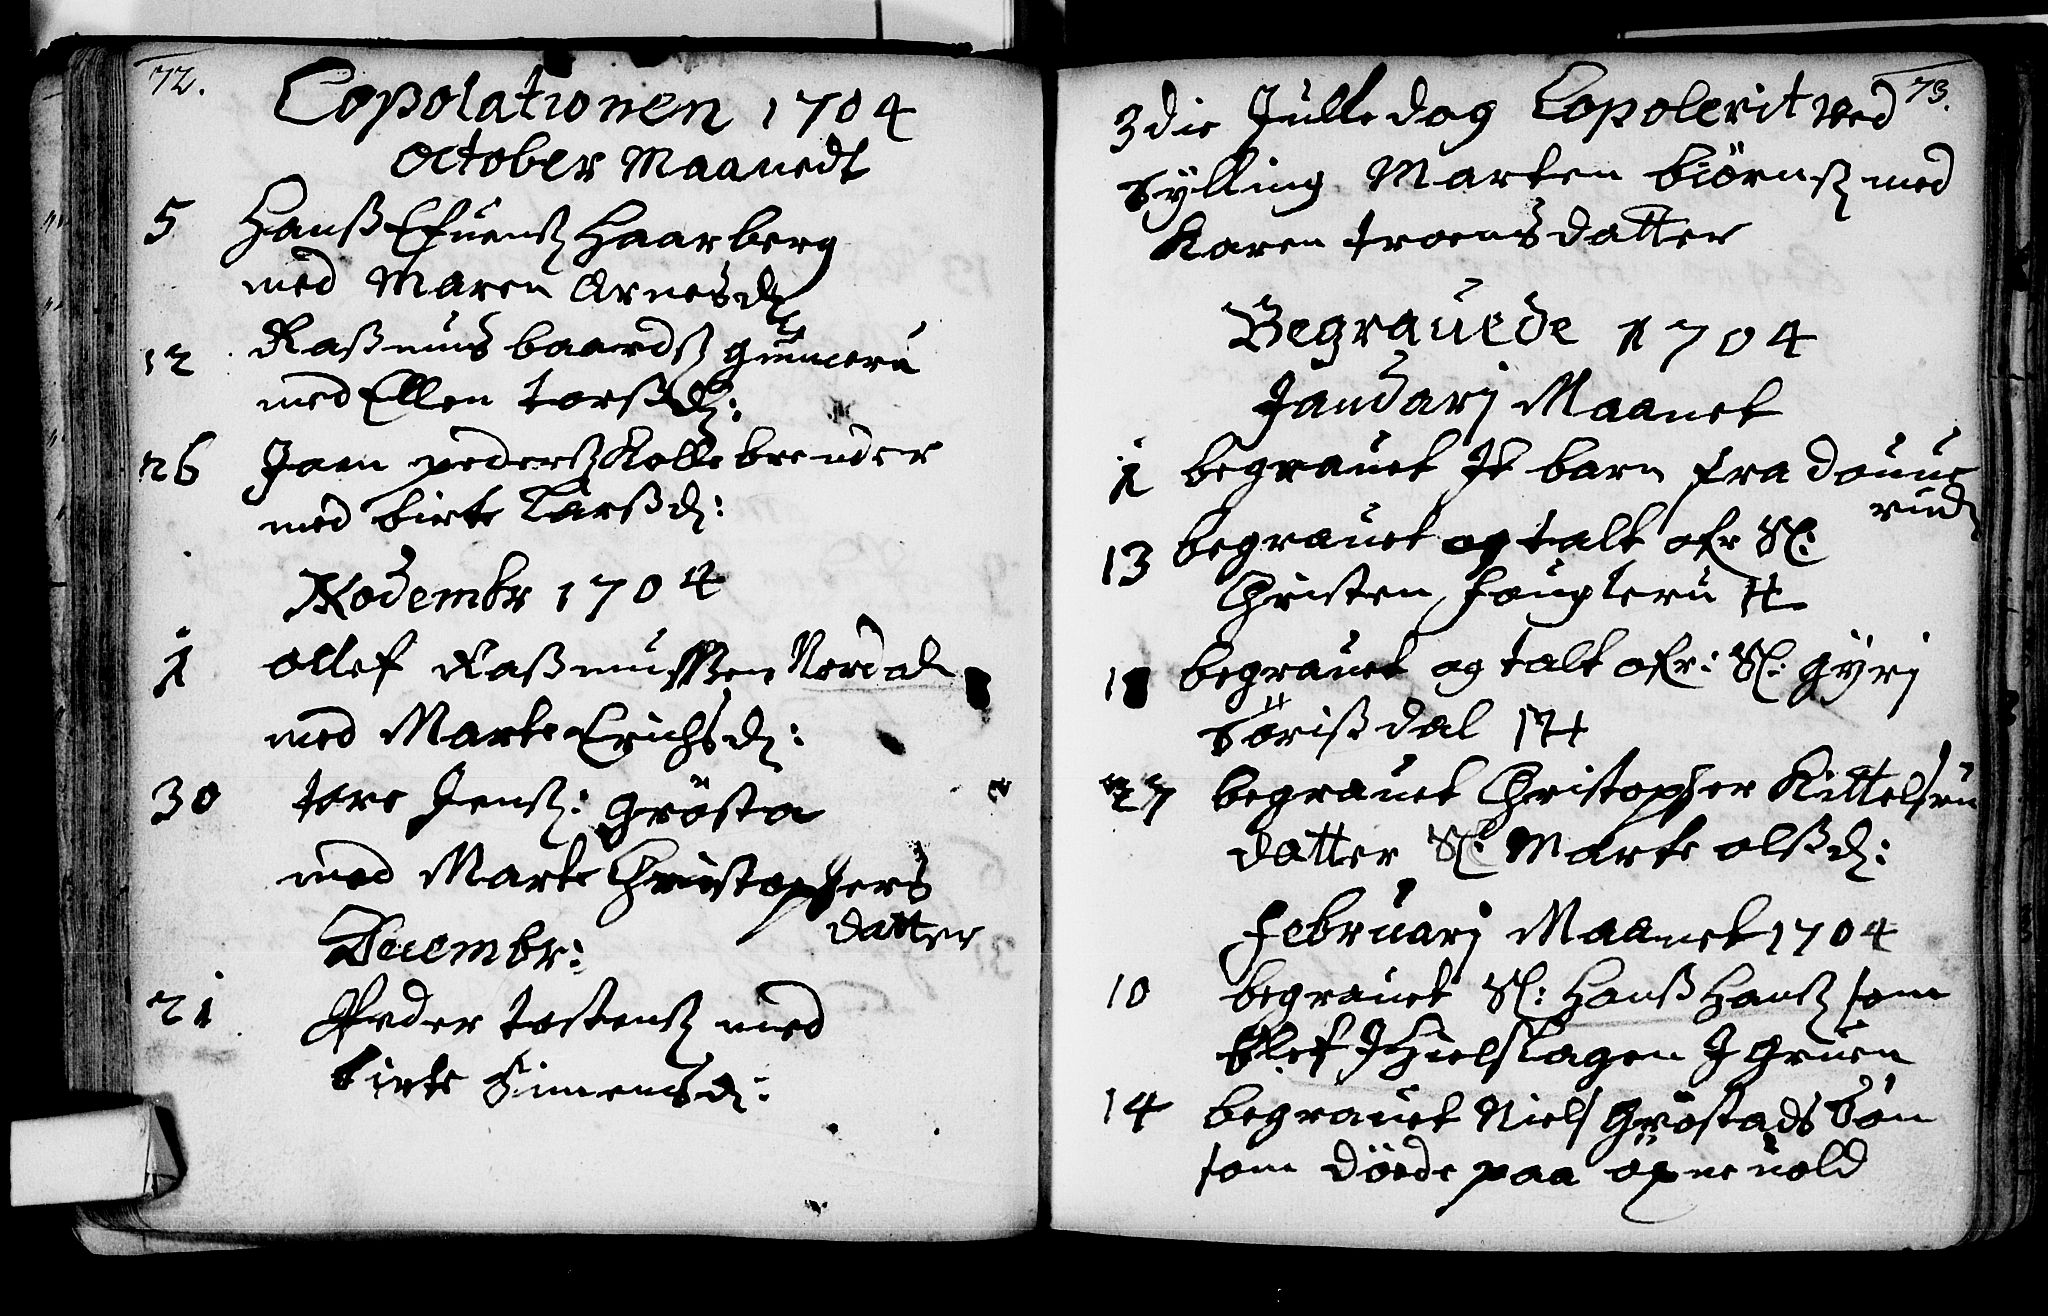 72.
Copolationen 1704
October Maanedt
5 Hanß Efuensß Haarberg
med Maren Arnesd:
12 Raßmus baardsß gunneru
med Ellen torßd:
26 Joen pedersß Kollebrender
med birte Larßd:
Novembr 1704
1 ollef Raßmussen Nordal
med Marte Erichsd:
30 tore Jensß: grösta
med Marte Christophers
datter
Decembr:
21 Peder tostensß med
birte Simensd:
73.
3die Julledag Copolerit ved
Sylling Marten biörnsß med
Karen troensdatter
Begrauede 1704
Januarj Maanet
1 begrauet It barn fra Douue
rud
13 begrauet og talt ofr Sl:
Christen fougleru
begrauet og talt ofr: Sl: gyrj
Sörißdal
27 begrauet Christopher Kittelsru
datter Sl: Marte olßd:
februarj Maanet 1704
10 begrauet Sl: Hanß Hansß som
blef IHielslagen I Gruen
14 begrauet Niels Gröstads Sön
som döede paa öxneuold